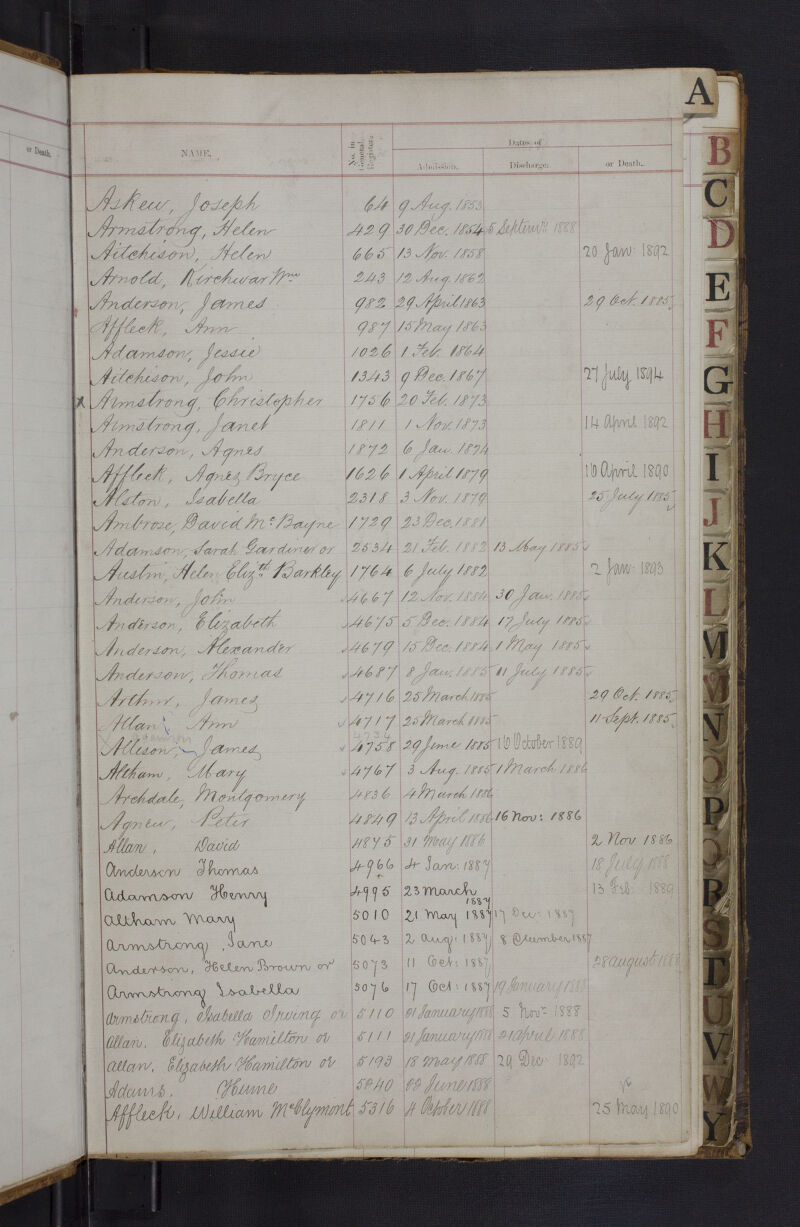 or Death.
A
NAME.
No. in General Register.
Dates of
Admission.
Discharge.
or Death.
Askew, Joseph 64 9 Aug. 1853
Armstrong, Helen 429 30 Dec. 1854 5 Septemr. 1888
Aitchison, Helen 665 13 Nov. 1858 20 Jan: 1892
Arnold, Kirchwar Wm 243 12 Aug. 1862
Anderson, James 982 29 April 1863 29 Oct. 1885
Affleck, Ann 987 15 May 1863
Adamson, Jessie 1026 1 Feb. 1864
Aitchison, John 1343 9 Dec. 1867 27 July 1894
x Armstrong, Christopher 1756 20 Feb. 1873
Armstrong, Janet 1811 1 Nov. 1873 14 April 1892
Anderson, Agnes 1872 6 Jan. 1874
Affleck, Agnes Bryce 1626 1 April 1879 16 April 1890
Alston, Isabella 2318 3 Nov. 1879 25 July 1885
Ambrose, David Mc Bayne 1729 23 Dec. 1881
Adamson, Sarah Gardiner or 2534 21 Feb. 1882 13 May 1885
Austin, Helen Elizth Barkley 1764 6 July 1882 2 Jan: 1893
Anderson, John 4667 12 Nov. 1884 30 Jan. 1885
Anderson, Elizabeth 4675 5 Dec. 1884 17 July 1885
Anderson, Alexander 4679 15 Dec. 1884 1 May 1885
Anderson, Thomas 4687 8 Jan. 1885 11 July 1885
Arthur, James 4716 25 March 1885 29 Oct. 1885
Allan, Ann 4717 25 March 1885 11 Sept. 1885
4734
Allison, James 4758 29 June 1885 16 October 1889
Altham, Mary 4767 3 Aug. 1885 1 March 1886
Archdale, Montgomery 4836 4 March 1886
Agnew, Peter 4849 13 April 1886 16 Nov: 1886
Allan, David 4875 31 May 1886 2 Nov 1886
Anderson Thomas 4966 4 Jan: 1887 18 July 1888
Adamson Henry 4995 23 March 1887 13 Feb: 1889
Altham Mary 5010 21 May 1887 17 Dec: 1887
Armstrong, Jane 5043 2 Aug: 1887 8 December 1887
Anderson, Helen Brown or 5073 11 Oct: 1887 28 August 1888
Armstrong Isabella 5076 17 Oct: 1887 19 January 1888
Armstrong, Isabella Irving or 5110 21 January 1888 5 Nov: 1888
Allan, Elizabeth Hamilton or 5111 21 January 1888 21 April 1888
Allan, Elizabeth Hamilton or 5193 18 May 1888 29 Dec 1892
Adams, Hume 5240 22 June 1888
Affleck, William McClymont 5316 4 October 1888 25 May 1890
B
C
D
E
F
G
H
I
J
K
L
M
Mc
N
O
P
Q
R
S
T
U
V
W
Y